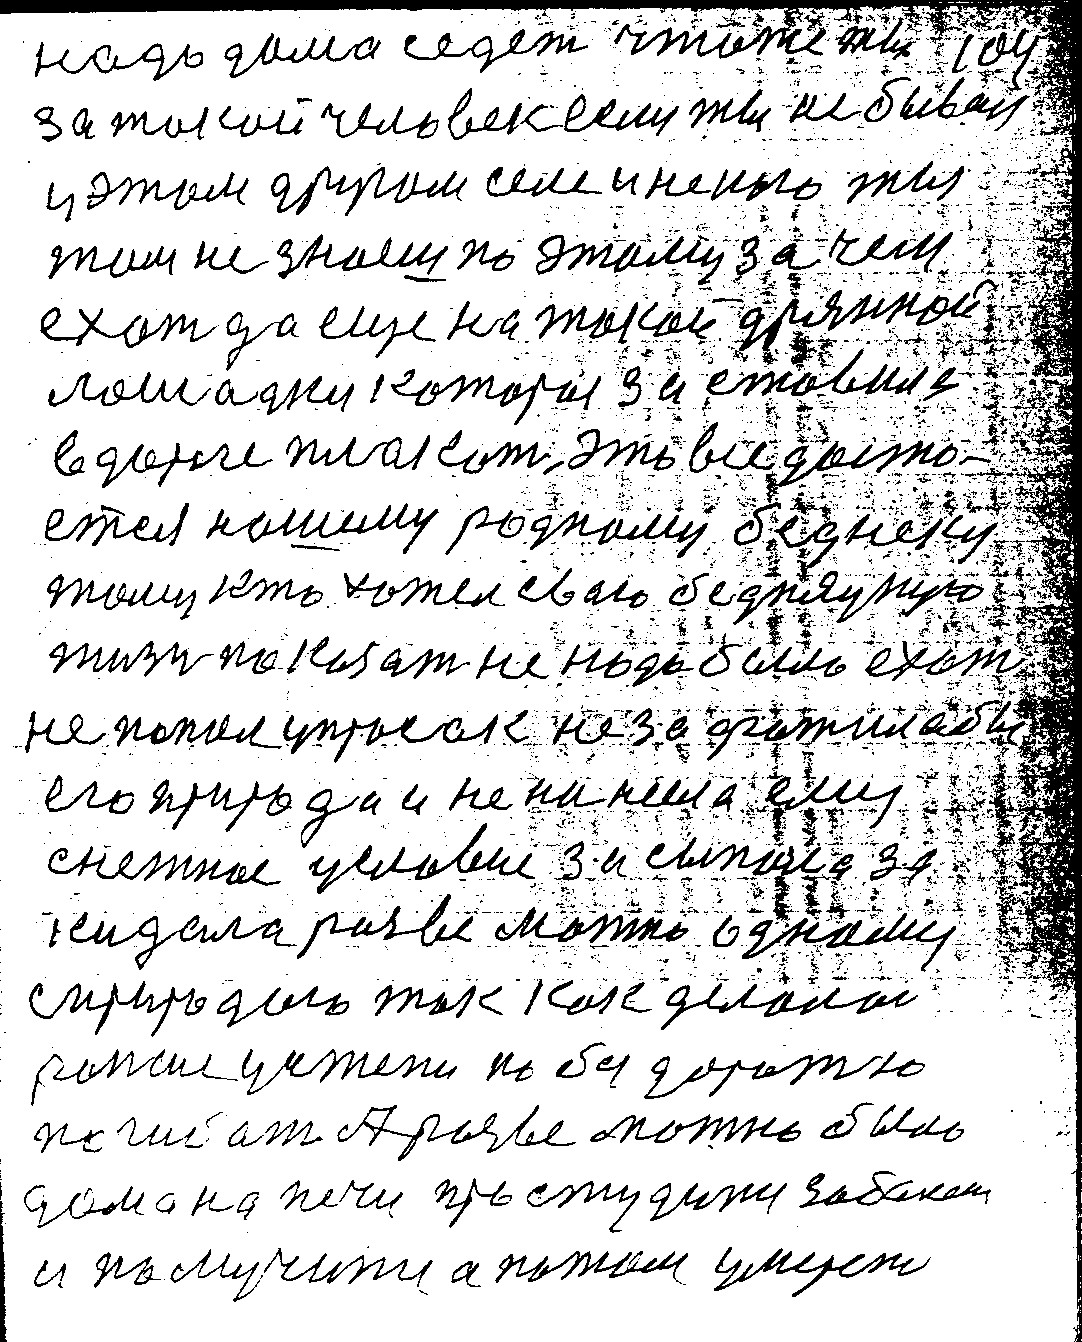 надь дома седет чтоже ты 104
за токой человек если ты не бывай
у этом другом селе и неково ты
там не знаеш по этому за чем
ехат да еще на токой дрянной
лошадки котора заставила
в дороге плакат, это все досто-
ется нашему родному беднеку
тому кто хотел сваю бедняцкую
жизн показат не надо было ехат
не попал упросак не за дражила бы
его природа и не нанисла ему
снежное условие засыпала за
кидала разве можно одному
с природою так как делали
раньше у степи по бездоротю
погибат А разве можно было
дома на печи простудити заболет
и помучити а потом умерет